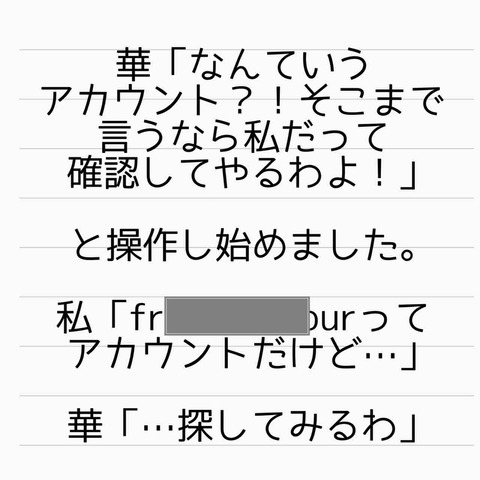 華「なんていう
アカウント？！そこまで
言うなら私だって
確認してやるわよ！」
と操作し始めました。
私「fr ourって
アカウントだけど…」
華「…探してみるわ」